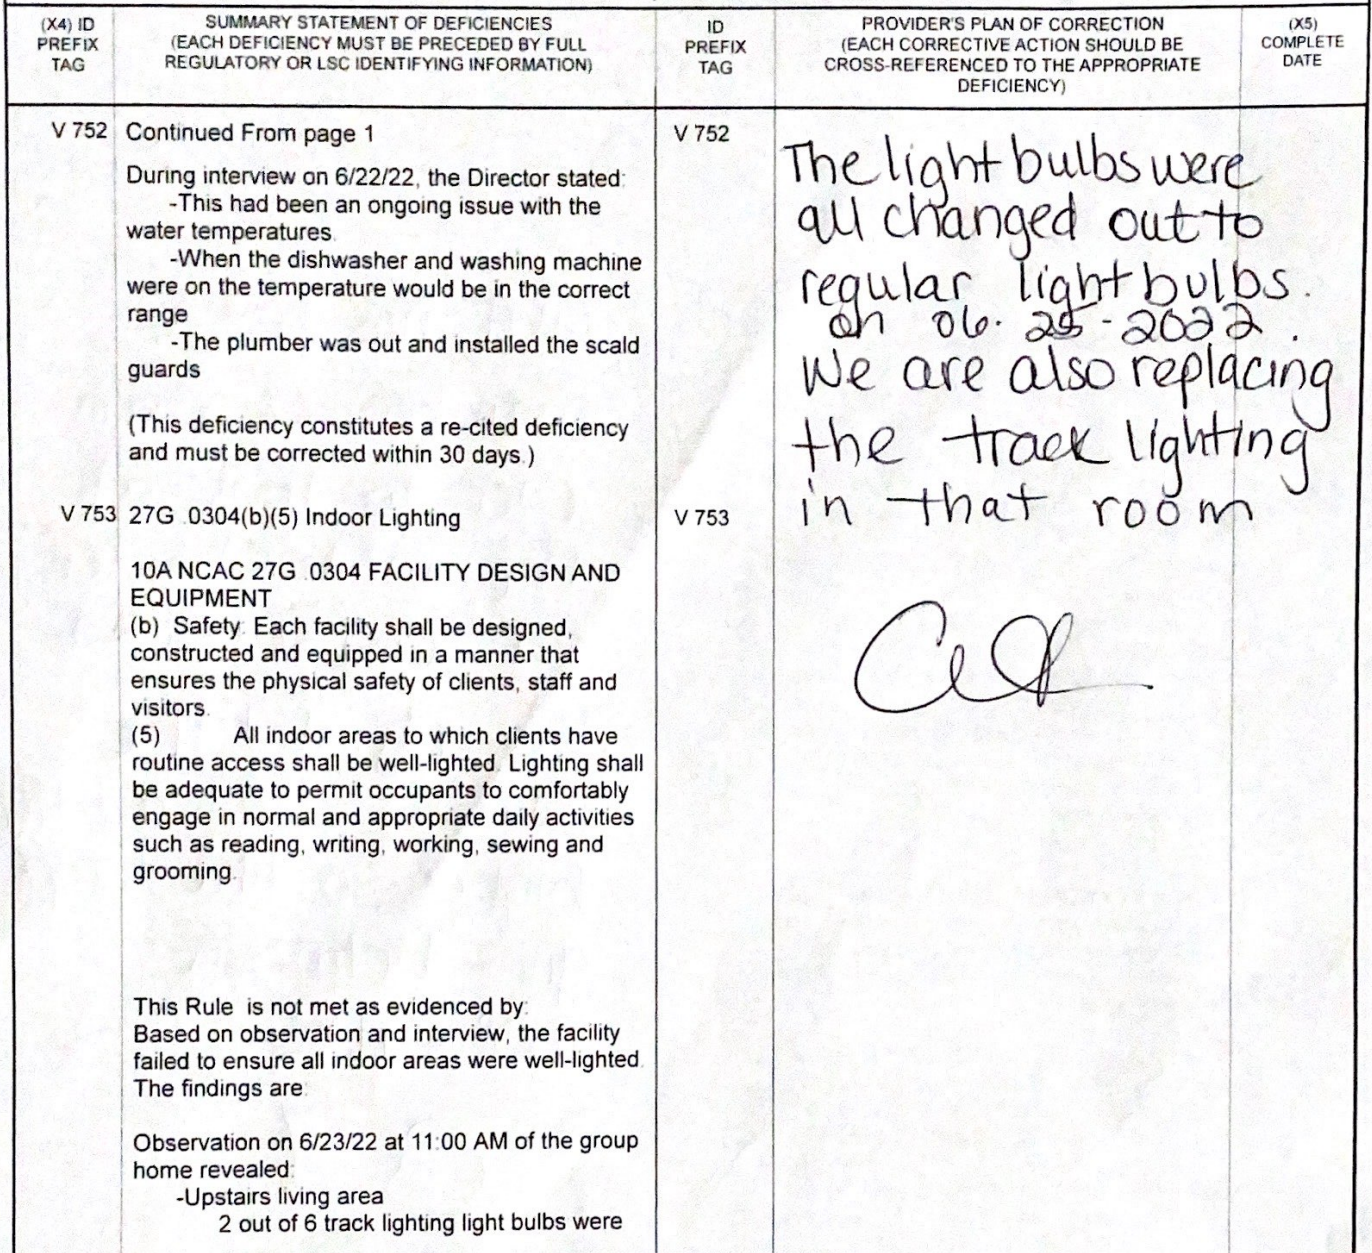 (X4) ID
PREFIX
TAG
SUMMARY STATEMENT OF DEFICIENCIES
(EACH DEFICIENCY MUST BE PRECEDED BY FULL
REGULATORY OR LSC IDENTIFYING INFORMATION)
ID
PREFIX
TAG
PROVIDER'S PLAN OF CORRECTION
(EACH CORRECTIVE ACTION SHOULD BE
CROSS-REFERENCED TO THE APPROPRIATE
DEFICIENCY)
(X5)
COMPLETE
DATE
V 752 Continued From page 1
During interview on 6/22/22, the Director stated:
-This had been an ongoing issue with the
water temperatures.
-When the dishwasher and washing machine
were on the temperature would be in the correct
range
-The plumber was out and installed the scald
guards
(This deficiency constitutes a re-cited deficiency
and must be corrected within 30 days.)
V 753 27G .0304(b)(5) Indoor Lighting
10A NCAC 27G .0304 FACILITY DESIGN AND
EQUIPMENT
(b) Safety: Each facility shall be designed,
constructed and equipped in a manner that
ensures the physical safety of clients, staff and
visitors.
(5) All indoor areas to which clients have
routine access shall be well-lighted. Lighting shall
be adequate to permit occupants to comfortably
engage in normal and appropriate daily activities
such as reading, writing, working, sewing and
grooming.
This Rule is not met as evidenced by:
Based on observation and interview, the facility
failed to ensure all indoor areas were well-lighted.
The findings are:
Observation on 6/23/22 at 11:00 AM of the group
home revealed:
-Upstairs living area
2 out of 6 track lighting light bulbs were
V 752
V 753
The light bulbs were
all changed out to
regular light bulbs.
on 06-25-2022.
We are also replacing
the track lighting
in that room